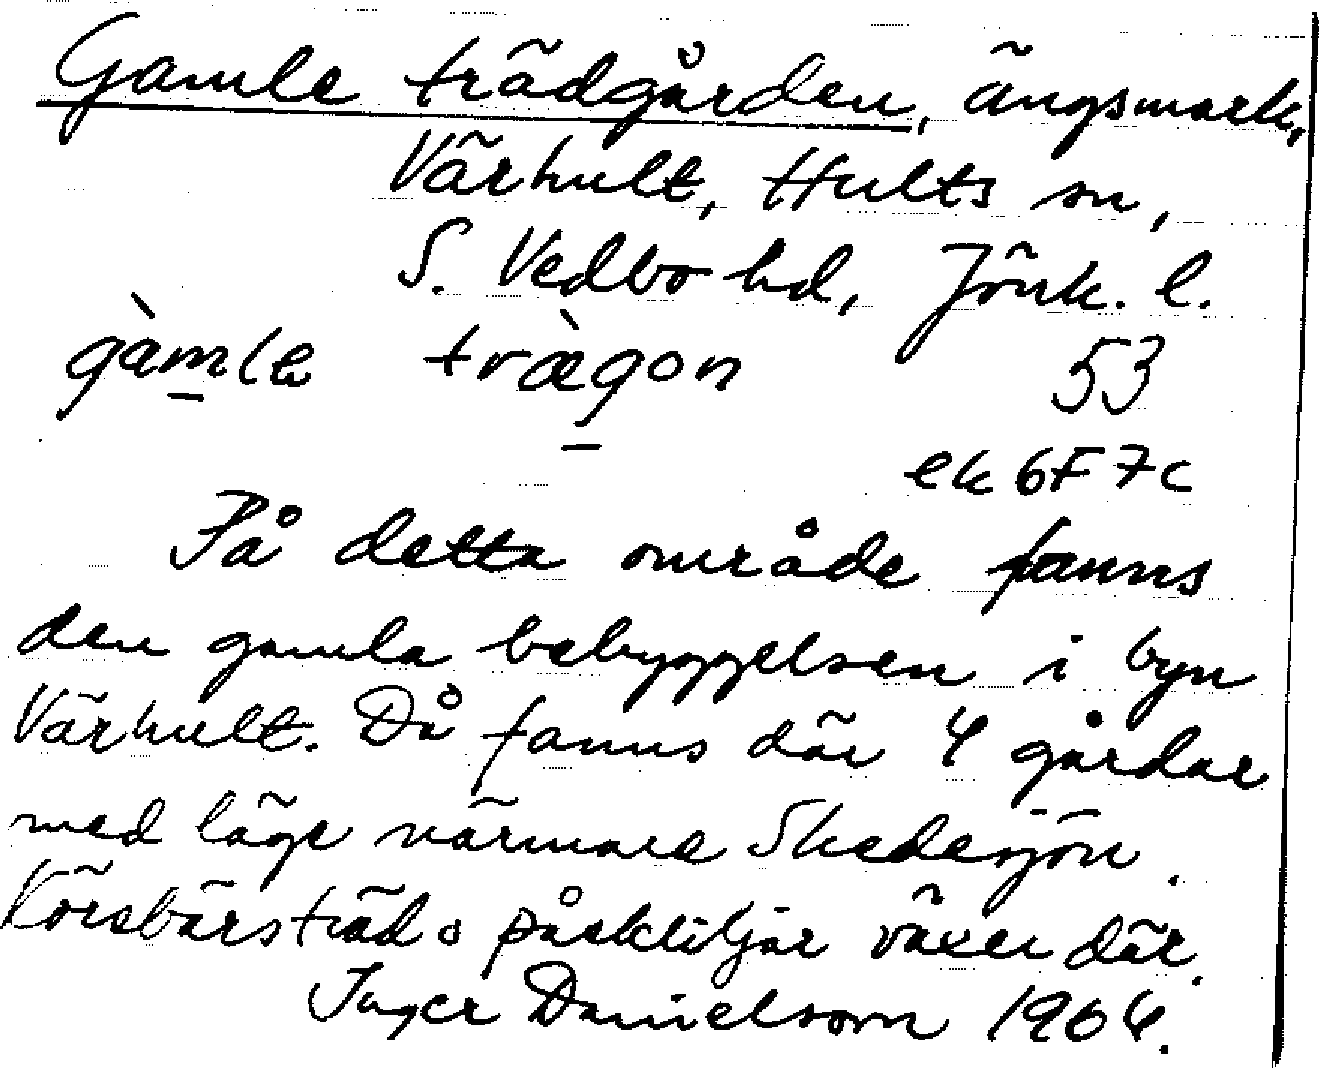 Gamle trädgården, ängsmark,
Värhult, Hults sn,
S. Vedbo hd, Jönk. l.
gàmle trægon 53
ek 6F 7c
På detta område fanns
den gamla bebyggelsen i byn
Värhult. Då fanns där 4 gårdar
med läge närmare Skedesjön.
Körsbärsträd o påskliljor växer där.
Inger Danielsson 1964.